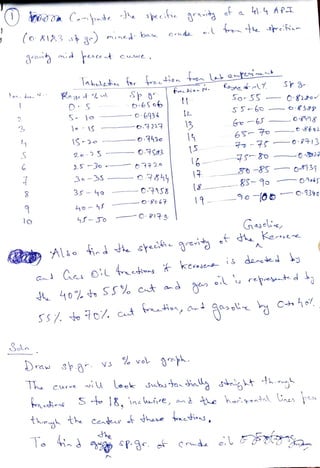 ① Compute the specific gravity of a 41.4 API
(0.8183 sp gr) mixed-base crude oil from the specific
gravity mid percent curve.
Tabulation for fraction from lab experiment
Percent cut Sp. gr.
Fraction No. Range of cut Sp gr
1 0-5 0.6506
2 5-10 0.6994
3 10-15 0.7217
4 15-20 0.7430
5 20-25
6 25-30
7 30-35 0.7844
8 35-40 0.7958
9 40-45 0.8067
10 45-50 0.8173
11 50-55
12 55-60
13 60-65
14 65-70
15 70-75 0.8713
16 75-80
17 80-85 0.8931
18 85-90
19 90-100
Also find the specific gravity of the Gasoline, Kerosene
and Gas Oil fractions if kerosene is denoted by
the 40% to 55% cut and gas oil is represented by
55% to 70% cut fraction, and gasoline by 0 to 40%.
Soln
Draw sp gr. vs % vol graph.
The curve will look substantially straight through
fractions 5 to 18, inclusive, and the horizontal lines pass
through the center of these fractions.
To find the sp. gr. of crude oil